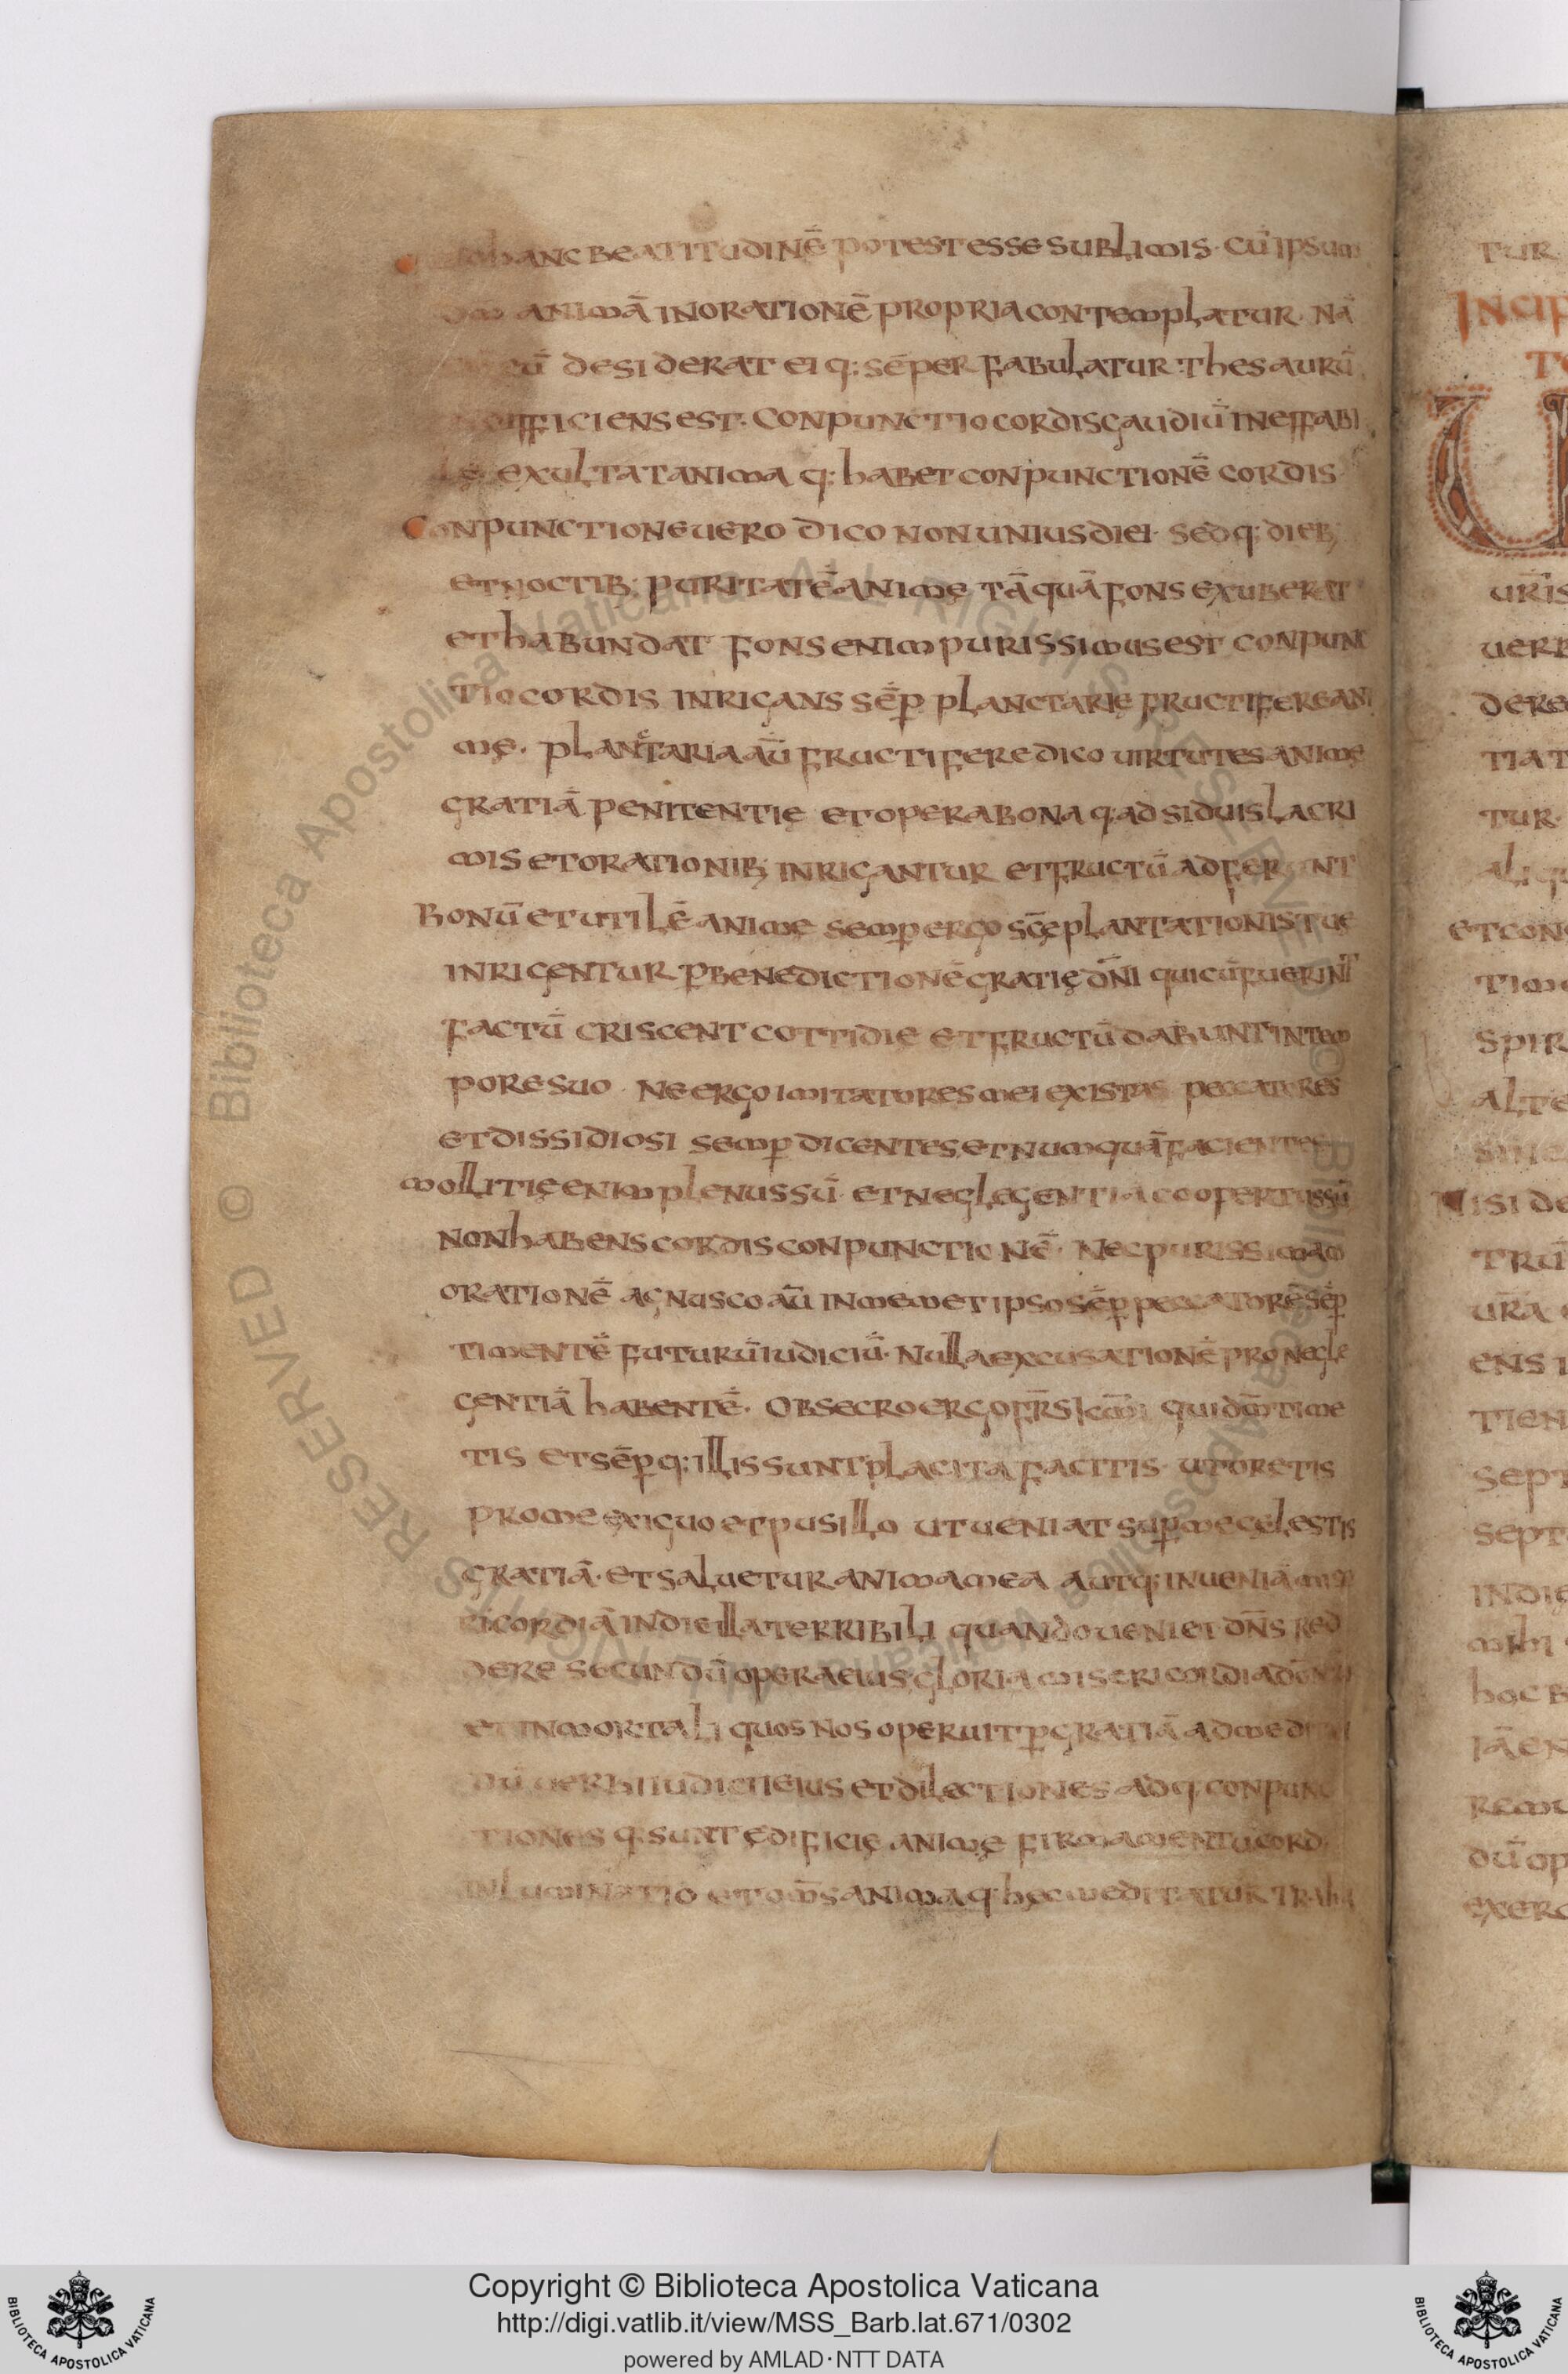 hanc beatitudinē potest esse sublimis · cū ipsum
animā in orationē propria contemplatur · nā
desiderat ei q; sēper fabulatur thesaurū
deficiens est · Conpunctio cordis gaudiū ineffabi
exultat anima q; habet conpunctionē cordis
Conpunctione uero dico non unius diei · sed q; dieb;
et noctib; puritatē animę tāquā fons exuberat
et habundat fons enim purissimus est conpunc
tio cordis inrigans sēp planctarię fructifere ani
mę · plantaria aū fructifere dico uirtutes animę
gratiā penitentię et opera bona q; adsiduis lacri
mis et orationib; inrigantur et fructū adferunt
Bonū et utilē animę semp ergo scē plantationis tuę
inrigentur p benedictionē gratię dn̄i qui cū fuerint
factū criscent cottidię et fructū dabunt in tem
pore suo · Ne ergo imitatores mei existas peccatores
et dissidiosi semp dicentes et numquā facientes
mollitię enim plenus sū · et neglegentia coopertus sū
non habens cordis conpunctionē · Nec purissimam
orationē agnusco aū in memet ipso sēp peccatorē sēp
timentē futurū iudiciū · Nulla excusationē pro negle
gentiā habentē · Obsecro ergo fr̄s qui dm̄ time
tis et sēp q; illis sunt placita facitis · ut oretis
pro me exiguo et pusillo ut ueniat sup me cęlestis
gratiā · et saluetur anima mea aut q; inueniā mise
ricordiā in die illa terribili quando ueniet dn̄s red
dere secundū opera eius gloria misericordia
et inmortali quos nos operuit p gratiā ad
uerbi iudicii eius et dilectiones ad q; conpunc
tiones q; sunt ędificię animę firmamentū cord
inluminatio et om̄s anima q; hęc meditatur

TUR
INCIP
uris
uerb
dere
tia t
tur ·
et con
time
spir
alte
Nisi de
trū
ur̄a
ens
tien
sept
sept
indie
mihi
hoc b
dū op
exerc

Biblioteca Apostolica Vaticana ALL RIGHTS RESERVED ©
Copyright © Biblioteca Apostolica Vaticana
http://digi.vatlib.it/view/MSS_Barb.lat.671/0302
powered by AMLAD · NTT DATA
BIBLIOTECA APOSTOLICA VATICANA
BIBLIOTECA APOSTOLICA VATICANA